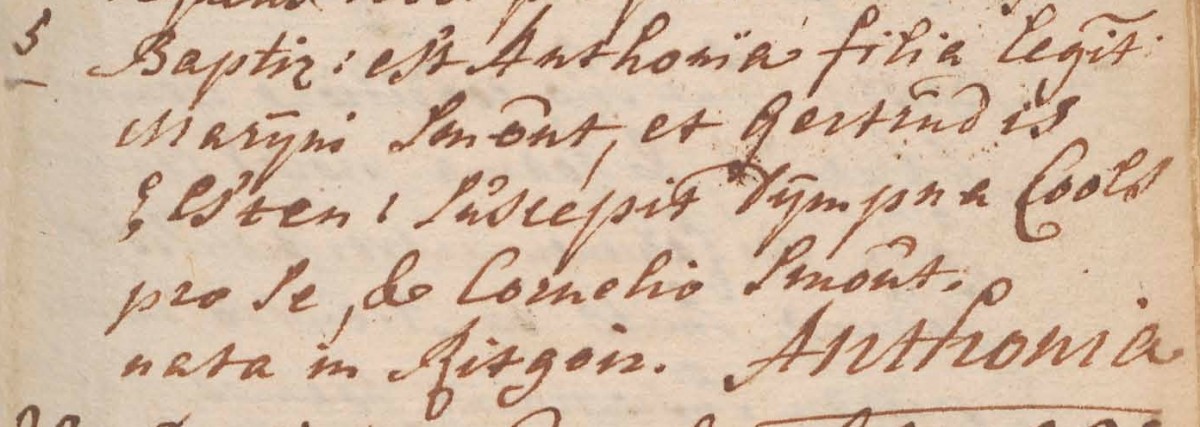 5 Baptiz: est Anthonia filia legit:
Maryni Smout, et Gertrudis
Elsten: Suscepit Dympna Cools
pro se, & Cornelio Smout.
nata in Ritgoir. Anthonia